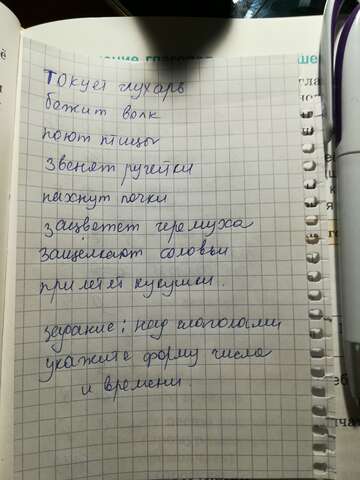 Токует глухарь
бежит волк
поют птицы
звенят ручейки
пахнут почки
зацветет черемуха
защелкают соловьи
прилетят кукушки.
задание: над глаголами
укажите форму числа
и времени